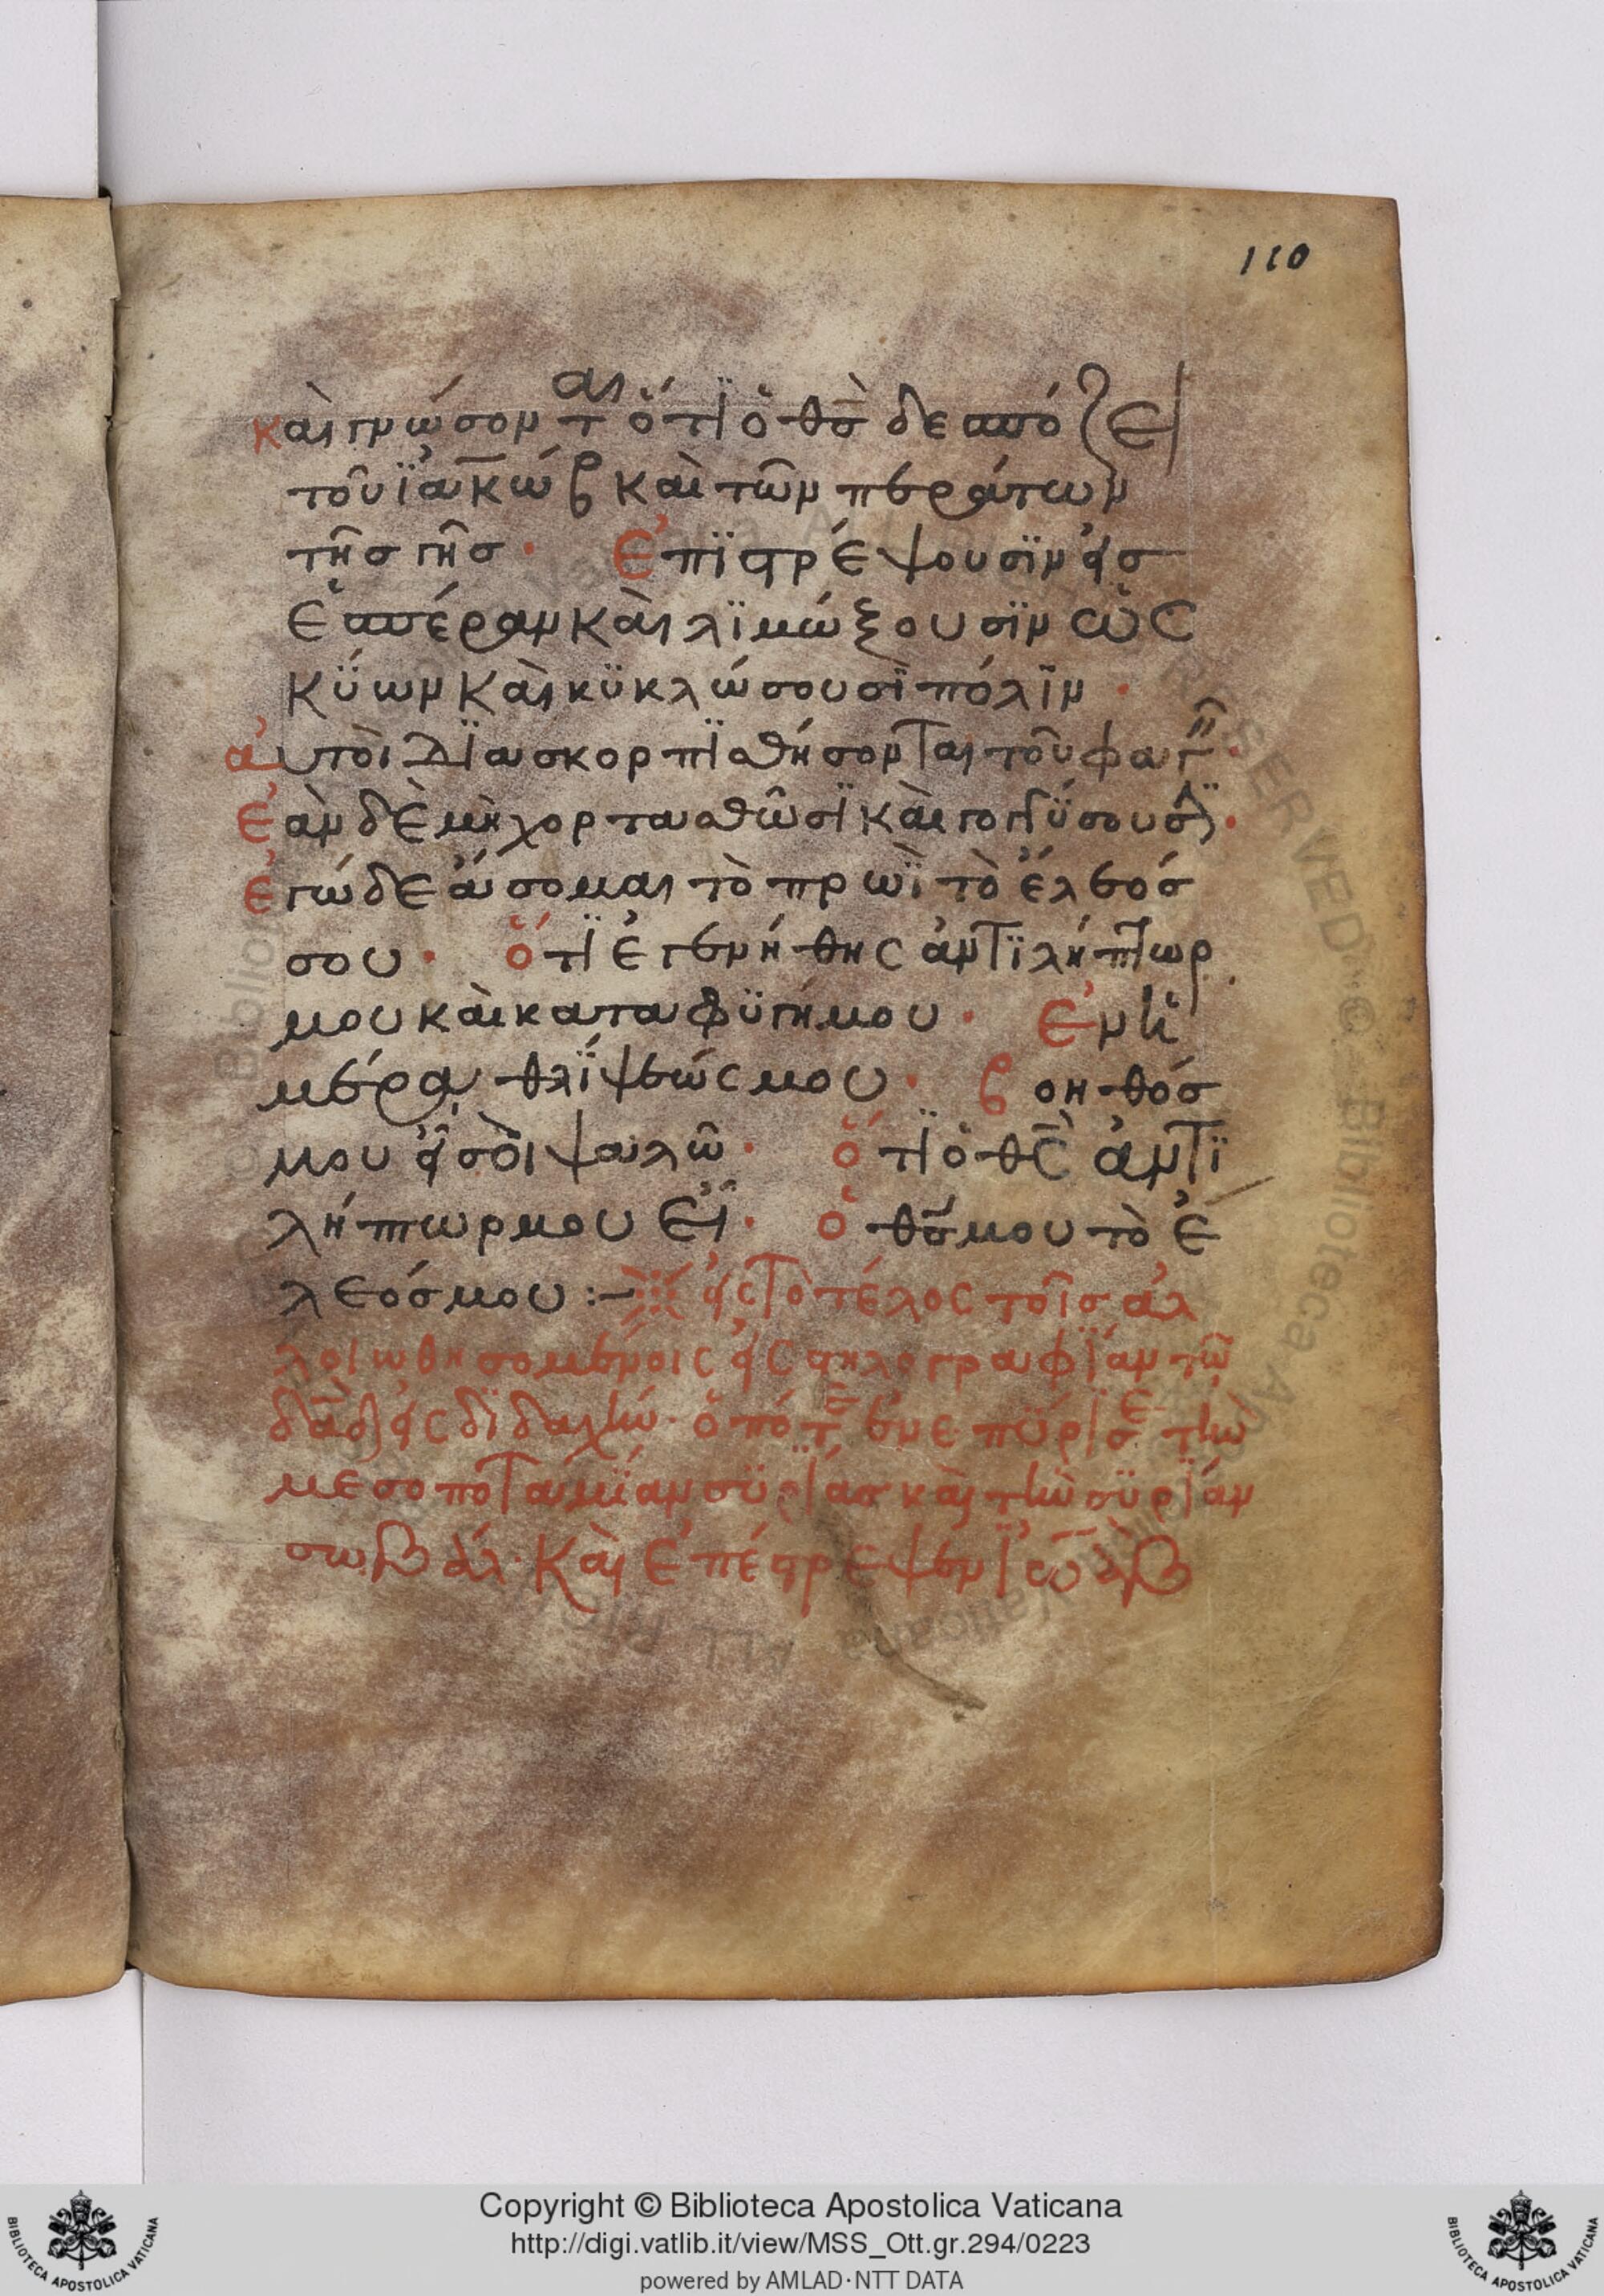 110
καὶ γνώσονται ὅτϊ ὁ θ̅σ̅ δεσπόζει
τοῦ ϊακώβ καὶ τῶν περάτων
τῆσ γῆσ · Ἐπϊστρέψουσϊν εἰσ
ἑσπέραν καὶ λϊμώξουσϊν ὡς
κϋων καὶ κϋκλώσουσϊ πόλϊν ·
αὐτοὶ δϊασκορπϊσθήσονται τοῦ φαγεῖν ·
Ἐὰν δὲ μὴ χορτασθῶσϊ καὶ γογγϋσουσϊν ·
Ἐγώ δε ἄσομαι τὸ πρωῒ τὸ ἔλεόσ
σου · ὅτϊ ἐγενήθης ἀντϊλήπτωρ
μου καὶ καταφϋγή μου · Ἐν ἡ
μέρα θλΐψεώς μου · βοηθόσ
μου εἶ σοὶ ψαλῶ · ὅτϊ ὁ θ̅ς̅ ἀντϊ
λήπτωρ μου εἶ · ὁ θ̅σ̅ μου τὸ ἔ
λεόσ μου :– εἰς τὸ τέλος τοῖσ ἀλ
λοιωθησομένοις εἰς στηλογραφϊαν τῷ
δα̅δ̅ εἰς δϊδαχήν · ὁπότε ἐνεπϋρϊσε τὴν
μεσοποταμϊαν σϋρϊασ καὶ τὴν σϋρϊαν
σωβάλ · Καὶ ἐπέστρεψεν ϊωὰβ
Copyright © Biblioteca Apostolica Vaticana
http://digi.vatlib.it/view/MSS_Ott.gr.294/0223
powered by AMLAD·NTT DATA
BIBLIOTECA APOSTOLICA VATICANA
BIBLIOTECA APOSTOLICA VATICANA